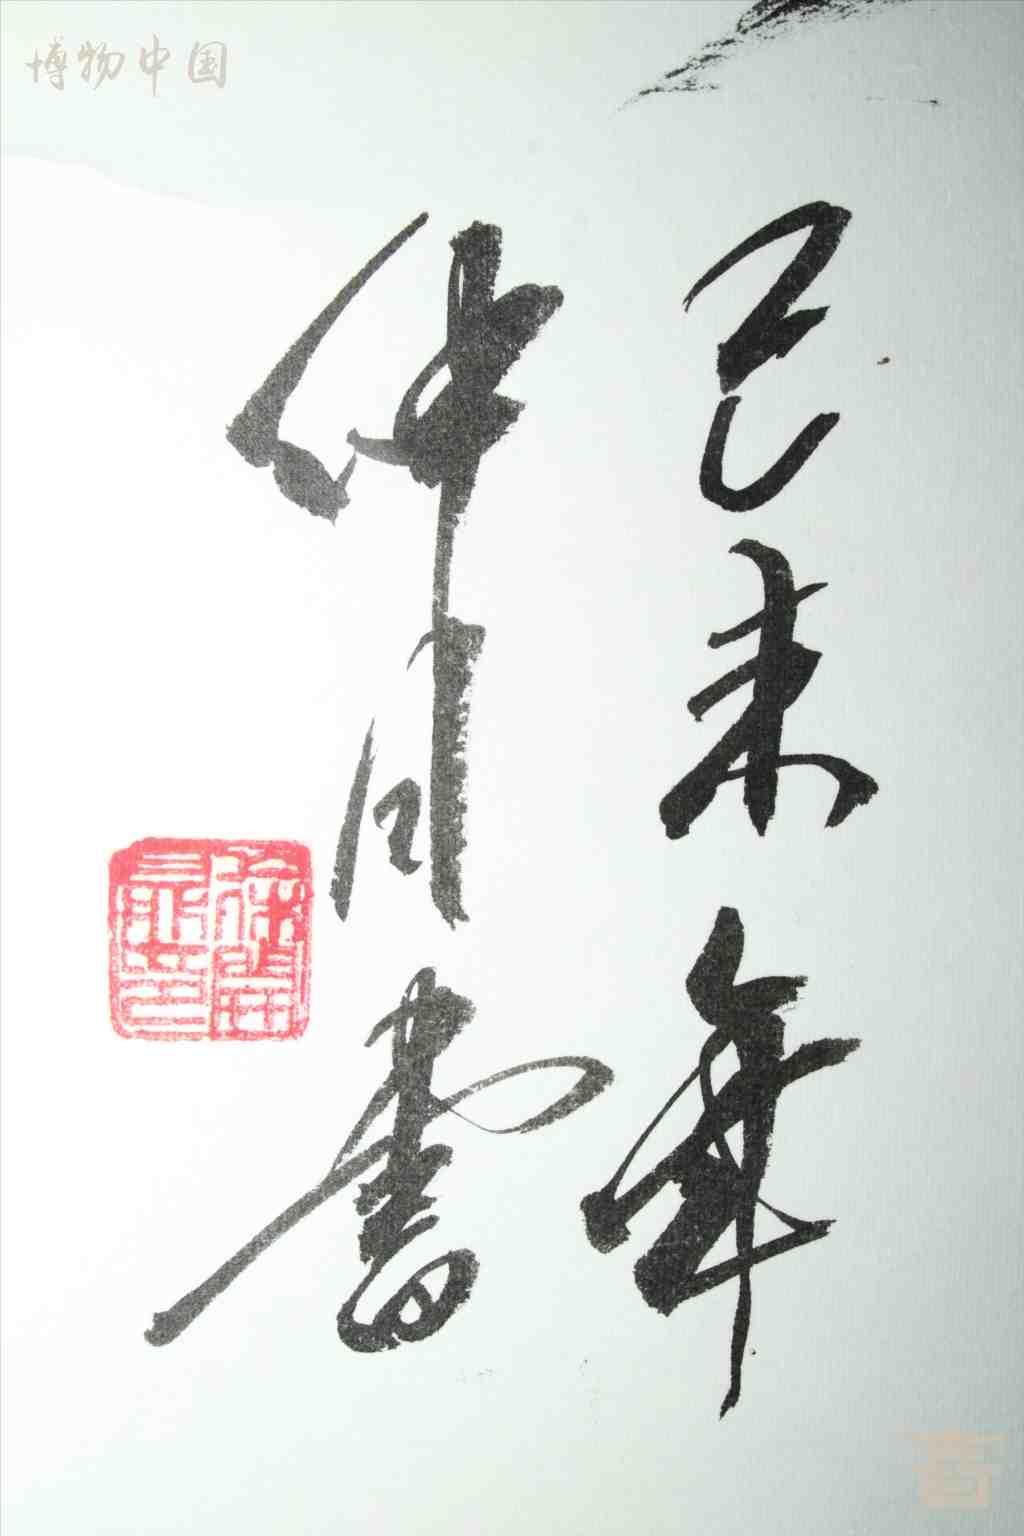 博物中国
己未年
仲月書